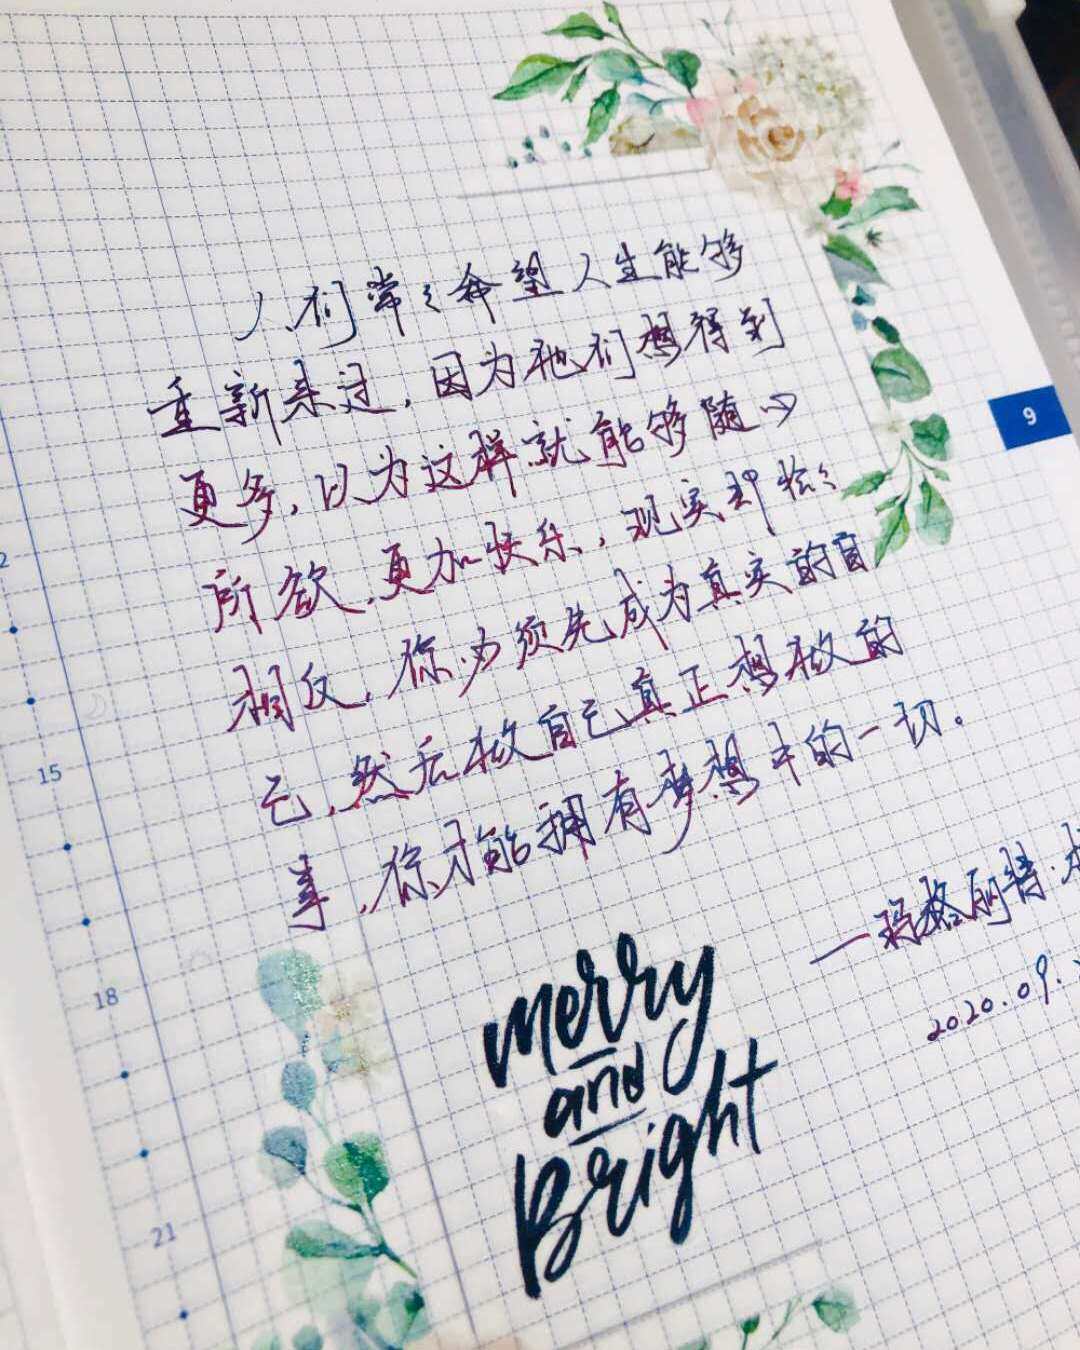 人们常々希望人生能够
重新来过，因为他们想得到
更多，以为这样就能够随心
所欲，更加快乐，现实却恰々
相反，你必须先成为真实的自
己，然后做自己真正想做的
事，你才能拥有梦想中的一切。
—玛格丽特·
2020.09.
merry
and
Bright
9
2
15
18
21